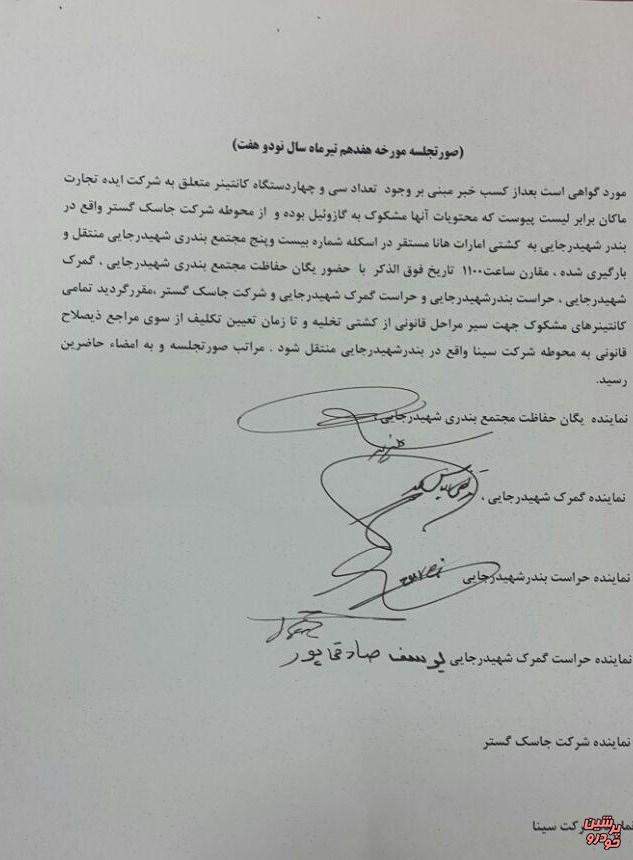 (صورتجلسه مورخه هفدهم تیرماه سال نودو هفت)
مورد گواهی است بعداز کسب خبر مبنی بر وجود تعداد سی و چهاردستگاه کانتینر متعلق به شرکت ایده تجارت
ماکان برابر لیست پیوست که محتویات آنها مشکوک به گازوئیل بوده و از محوطه شرکت جاسک گستر واقع در
بندر شهیدرجایی به کشتی امارات هانا مستقر در اسکله شماره بیست وپنج مجتمع بندری شهیدرجایی منتقل و
بارگیری شده ، مقارن ساعت۱۱۰۰ تاریخ فوق الذکر با حضور یگان حفاظت مجتمع بندری شهیدرجایی ، گمرک
شهیدرجایی ، حراست بندرشهیدرجایی و حراست گمرک شهیدرجایی و شرکت جاسک گستر ،مقررگردید تمامی
کانتینرهای مشکوک جهت سیر مراحل قانونی از کشتی تخلیه و تا زمان تعیین تکلیف از سوی مراجع ذیصلاح
قانونی به محوطه شرکت سینا واقع در بندرشهیدرجایی منتقل شود . مراتب صورتجلسه و به امضاء حاضرین
رسید.
نماینده یگان حفاظت مجتمع بندری شهیدرجایی ،
نماینده گمرک شهیدرجایی ،
نماینده حراست بندرشهیدرجایی
نماینده حراست گمرک شهیدرجایی یوسف صادقی پور
نماینده شرکت جاسک گستر
شرکت سینا
پرشین
خودرو